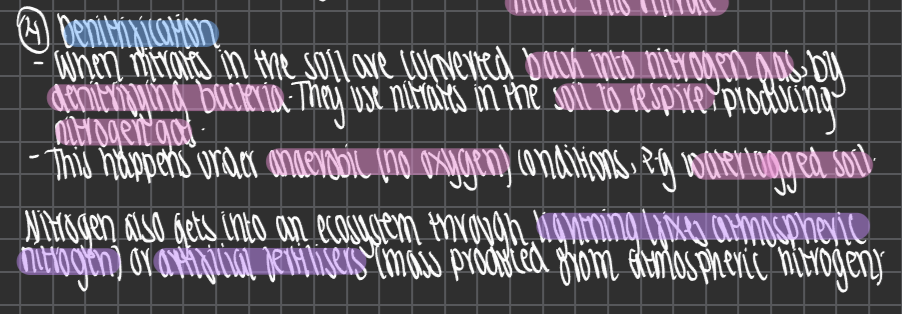 make this nitrate
④ Denitrification
- When nitrates in the soil are converted back into nitrogen gas, by
denitrifying bacteria. They use nitrates in the soil to respire, producing
nitrogen gas.
- This happens under anaerobic (no oxygen) conditions, e.g waterlogged soil.
Nitrogen also gets into an ecosystem through lightning (fixes atmospheric
nitrogen) or artificial fertilisers (mass produced from atmospheric nitrogen)